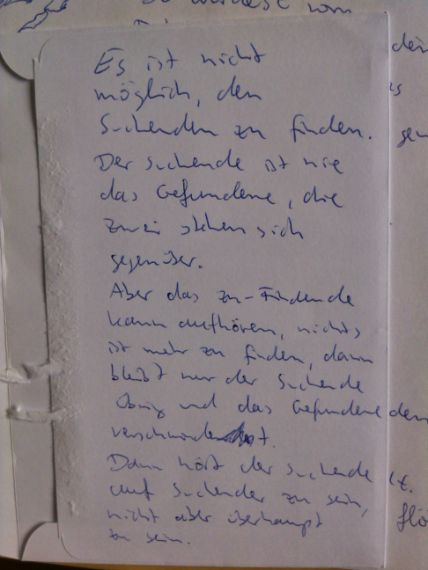 Es ist nicht
möglich, den
Suchenden zu finden.
Der Suchende ist nie
das Gefundene, die
zwei stehen sich
gegenüber.
Aber das zu-Findende
kann aufhören, nichts
ist mehr zu finden, dann
bleibt nur der Suchende
übrig und das Gefundene
verschwindet.
Dann hört der Suchende
auf Suchender zu sein,
nicht aber überhaupt
zu sein.